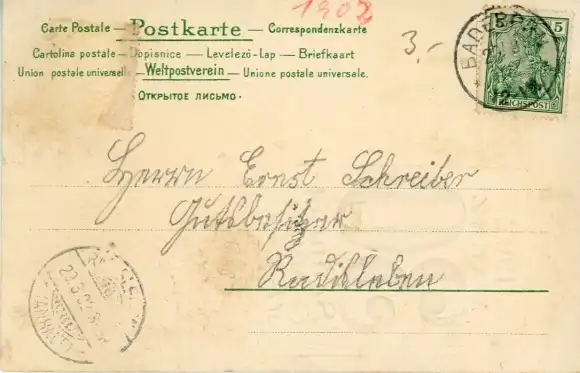 1902
Carte Postale – Postkarte – Correspondenzkarte
Cartolina postale – Dopisnice – Levelező-Lap – Briefkaart
Union postale universelle Weltpostverein – Unione postale universale.
ОТКРЫТОЕ ПИСЬМО.
3.-
5
REICHSPOST
Herrn Ernst Schreiber
Gutsbesitzer
Radisleben